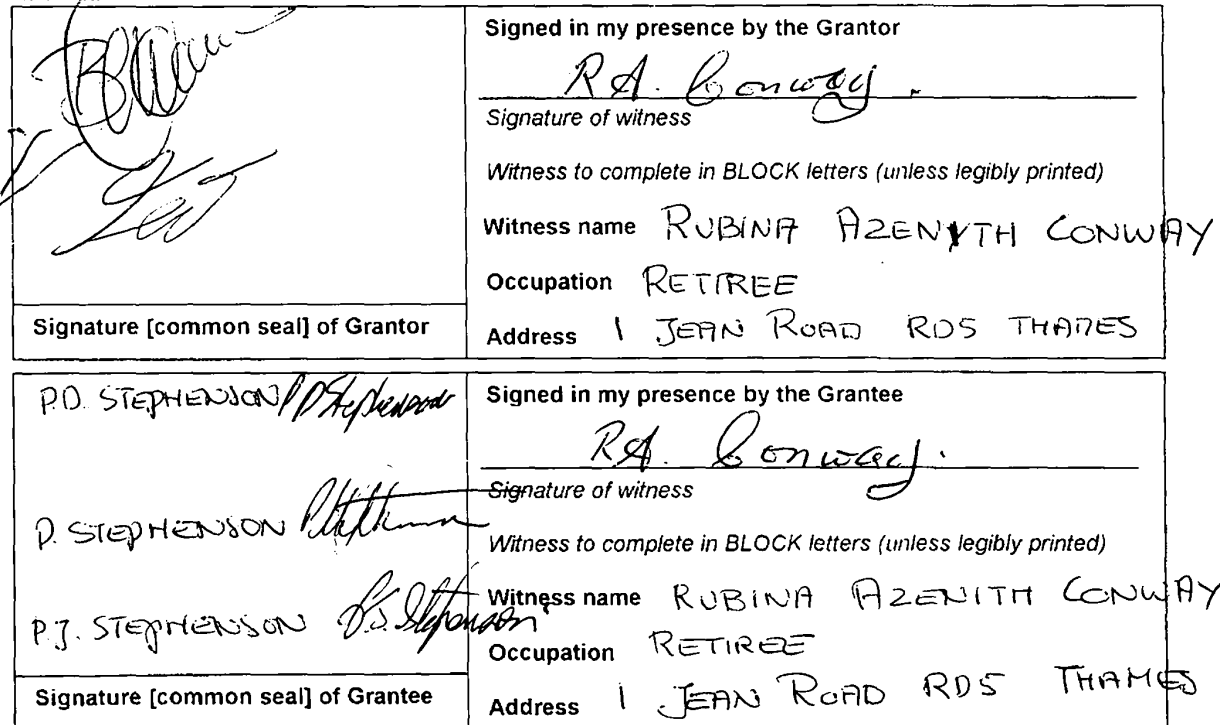 Signed in my presence by the Grantor
R.A. Conway.
Signature of witness
Witness to complete in BLOCK letters (unless legibly printed)
Witness name RUBINA AZENYTH CONWAY
Occupation RETIREE
Address 1 JEAN ROAD RD5 THAMES
Signature [common seal] of Grantor
P.D. STEPHENSON PDStephenson
D. STEPHENSON
P.J. STEPHENSON P.J. Stephenson
Signature [common seal] of Grantee
Signed in my presence by the Grantee
R.A. Conway.
Signature of witness
Witness to complete in BLOCK letters (unless legibly printed)
Witness name RUBINA AZENITH CONWAY
Occupation RETIREE
Address 1 JEAN ROAD RD5 THAMES